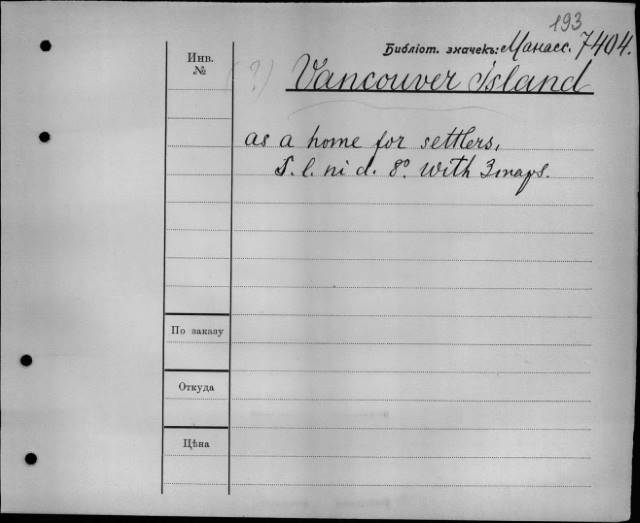 193
Библіот. значекъ: Манасс. 7404.
Инв.
№
(?) Vancouver Island
as a home for settlers,
S. l. ni d. 8º. with 3 maps.
По заказу
Откуда
Цѣна